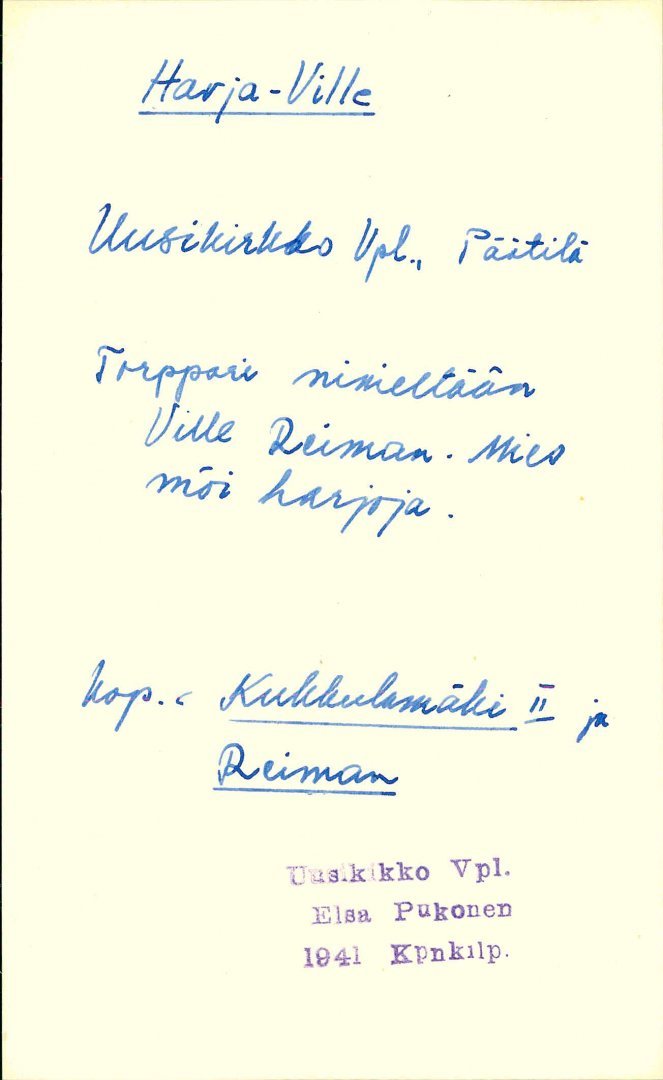 Harja-Ville
Uusikirkko Vpl., Päätilä
Torppari nimeltään
Ville Reiman. Mies
möi harjoja.
kop. < Kukkulamäki II ja
Reiman
Uusikikko Vpl.
Elsa Pukonen
1941 Kpnkilp.